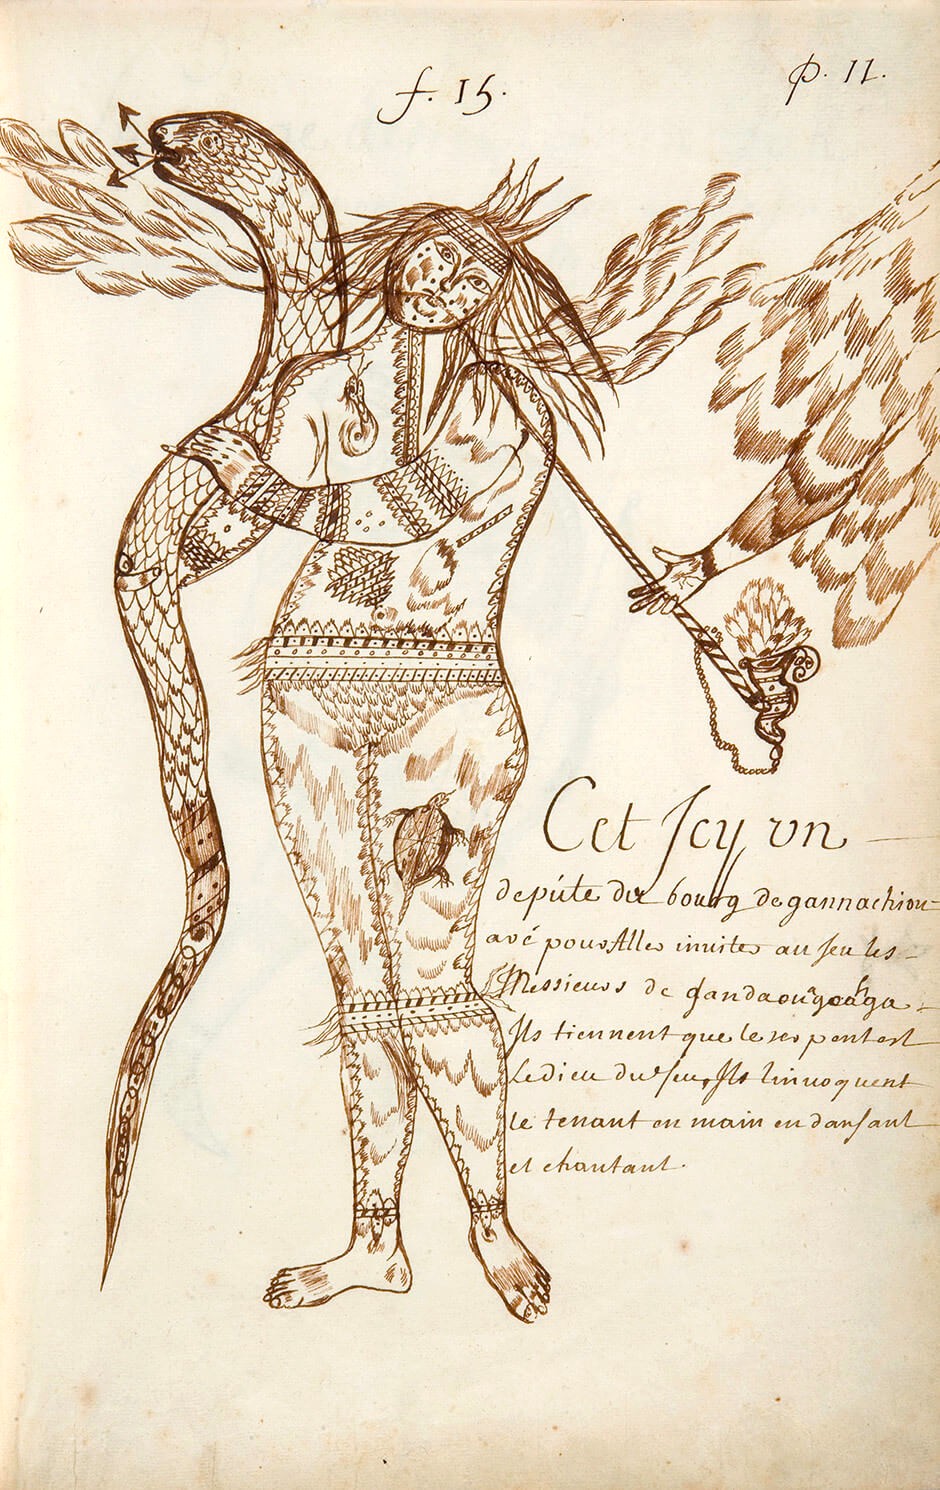 f. 15.
p. 11.
Cet Jcy un
depúte du bourg de gannachiou-
avé pour Aller inviter au Jeu les
Messieurs de gandaouagoahga.
Ils tiennent que le serpent est
Le dieu du feu, Ils linvoquent
le tenant en main en dansant
et chantant.